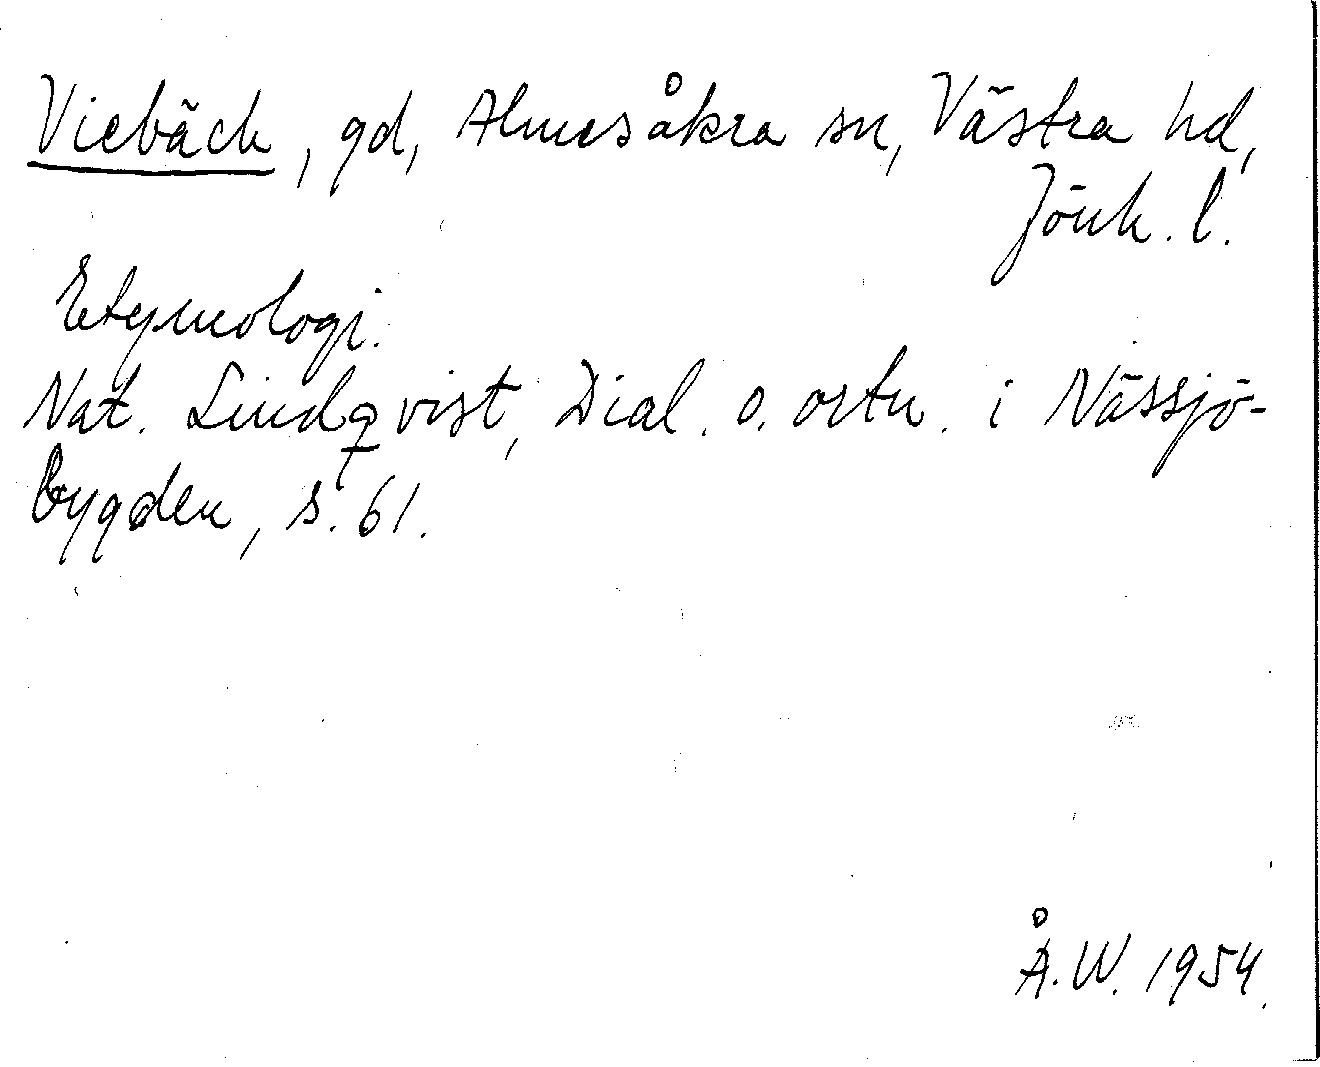 Viebäck, gd, Almesåkra sn, Västra hd,
Jönk. l.
Etymologi.
Nat. Lindqvist, Dial. o. ortn. i Nässjö-
bygden, s. 61.
Å.W. 1954.